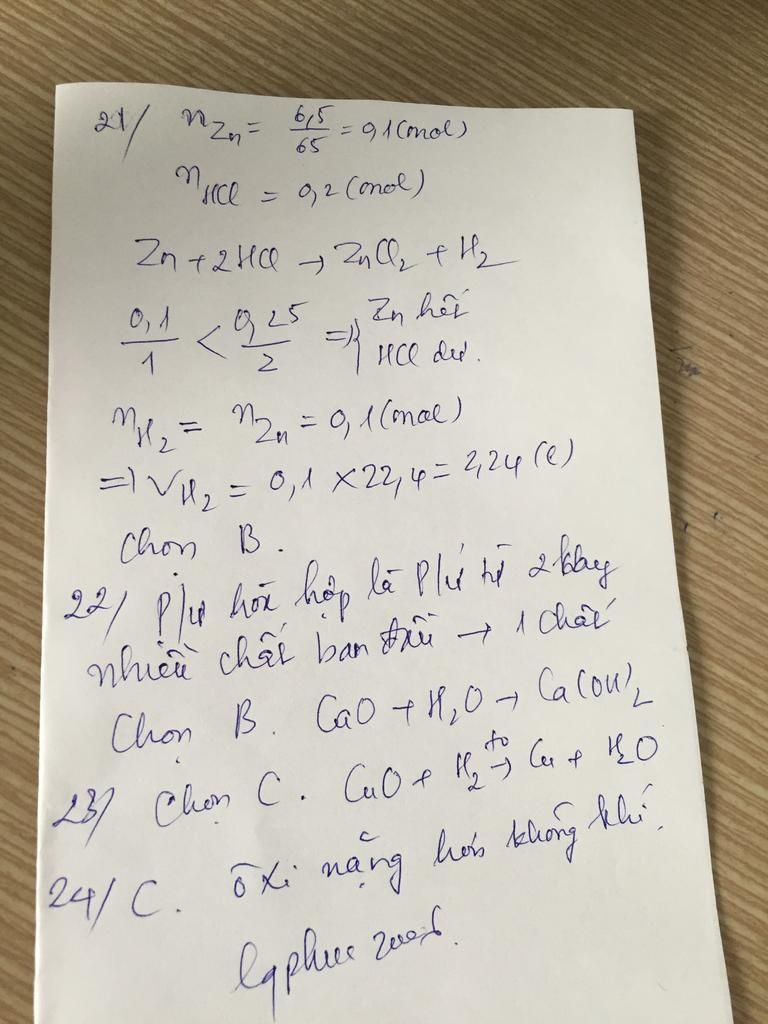 21/ nZn = 6,5/65 = 0,1 (mol)
nHCl = 0,2 (mol)
Zn + 2HCl → ZnCl2 + H2
0,1/1 < 0,25/2 => { Zn hết
HCl dư.
nH2 = nZn = 0,1 (mol)
=> VH2 = 0,1 × 22,4 = 2,24 (l)
Chọn B.
22/ P/ư hóa hợp là P/ư từ 2 hay
nhiều chất ban đầu → 1 chất
Chọn B. CaO + H2O → Ca(OH)2
23/ Chọn C. CuO + H2 →to Cu + H2O
24/ C. Ôxi nặng hơn không khí.